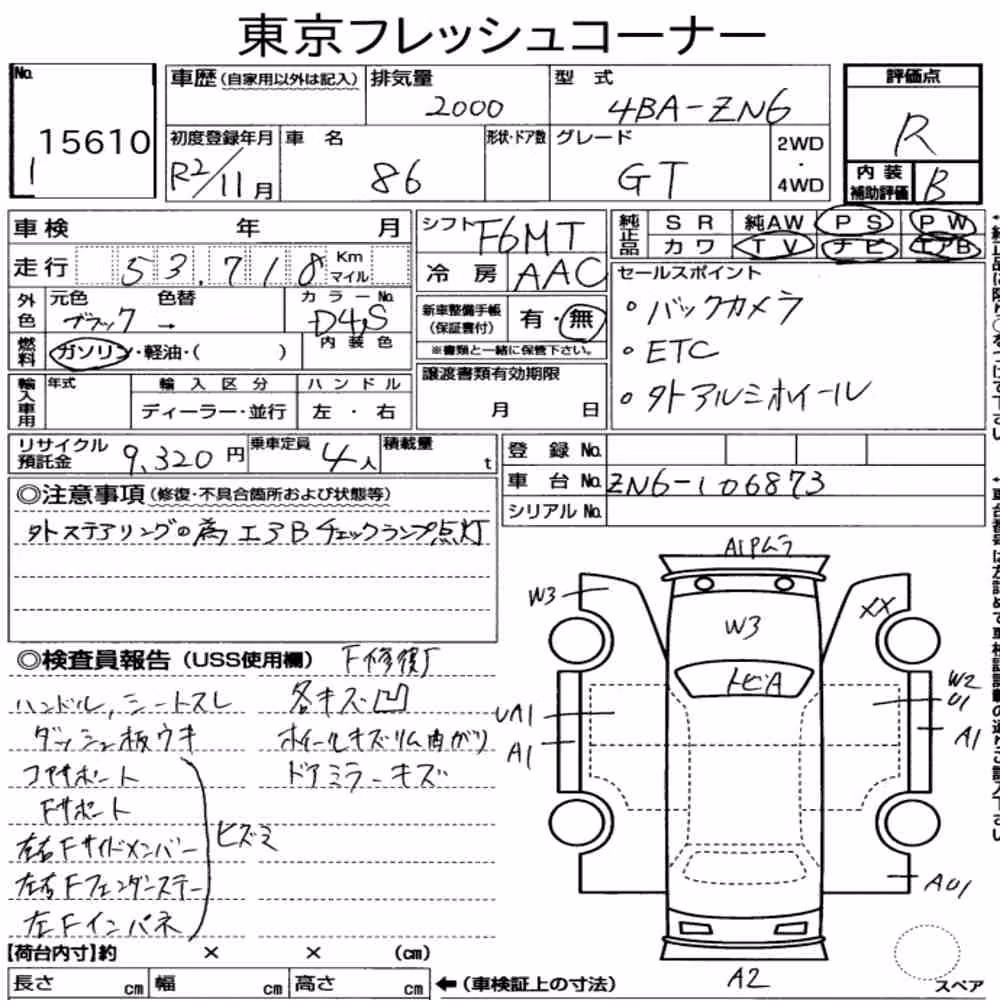 東京フレッシュコーナー
No.
15610
車歴(自家用以外は記入)
排気量
2000
型式
4BA-ZN6
評価点
R
初度登録年月
R2/11月
車名
86
形状・ドア数
グレード
GT
2WD
・
4WD
内装
補助評価
B
車検 年 月
シフト
F6MT
純正品
SR 純AW PS PW
カワ TV ナビ エアB
走行
53,718
Km
マイル
冷房
AAC
セールスポイント
・バックカメラ
・ETC
・外アルミホイール
外色
元色 色替
ブラック →
カラーNo.
D4S
内装色
新車整備手帳
(保証書付)
有・無
※書類と一緒に保管下さい。
燃料
ガソリン・軽油・( )
輸入車用
年式
輸入区分
ディーラー・並行
ハンドル
左・右
譲渡書類有効期限
月 日
リサイクル
預託金
9,320円
乗車定員
4人
積載量
t
登録No.
車台No.
ZN6-106873
シリアルNo.
◎注意事項(修復・不具合箇所および状態等)
外ステアリングの為エアBチェックランプ点灯
◎検査員報告(USS使用欄)
F修復歴
ハンドル,シートスレ
各キズ凹
ダッシュ板ウキ
ホイールキズリム曲がり
コアサポート
ドアミラーキズ
Fサポート
左右Fサイドメンバー
ヒズミ
左右Fフェンダーステー
左Fインパネ
A1Pムラ
W3
XX
W3
トビA
W2
U1
UA1
A1
A1
AU1
A2
スペア
【荷台内寸】約 × × (cm)
長さ cm 幅 cm 高さ cm
←(車検証上の寸法)